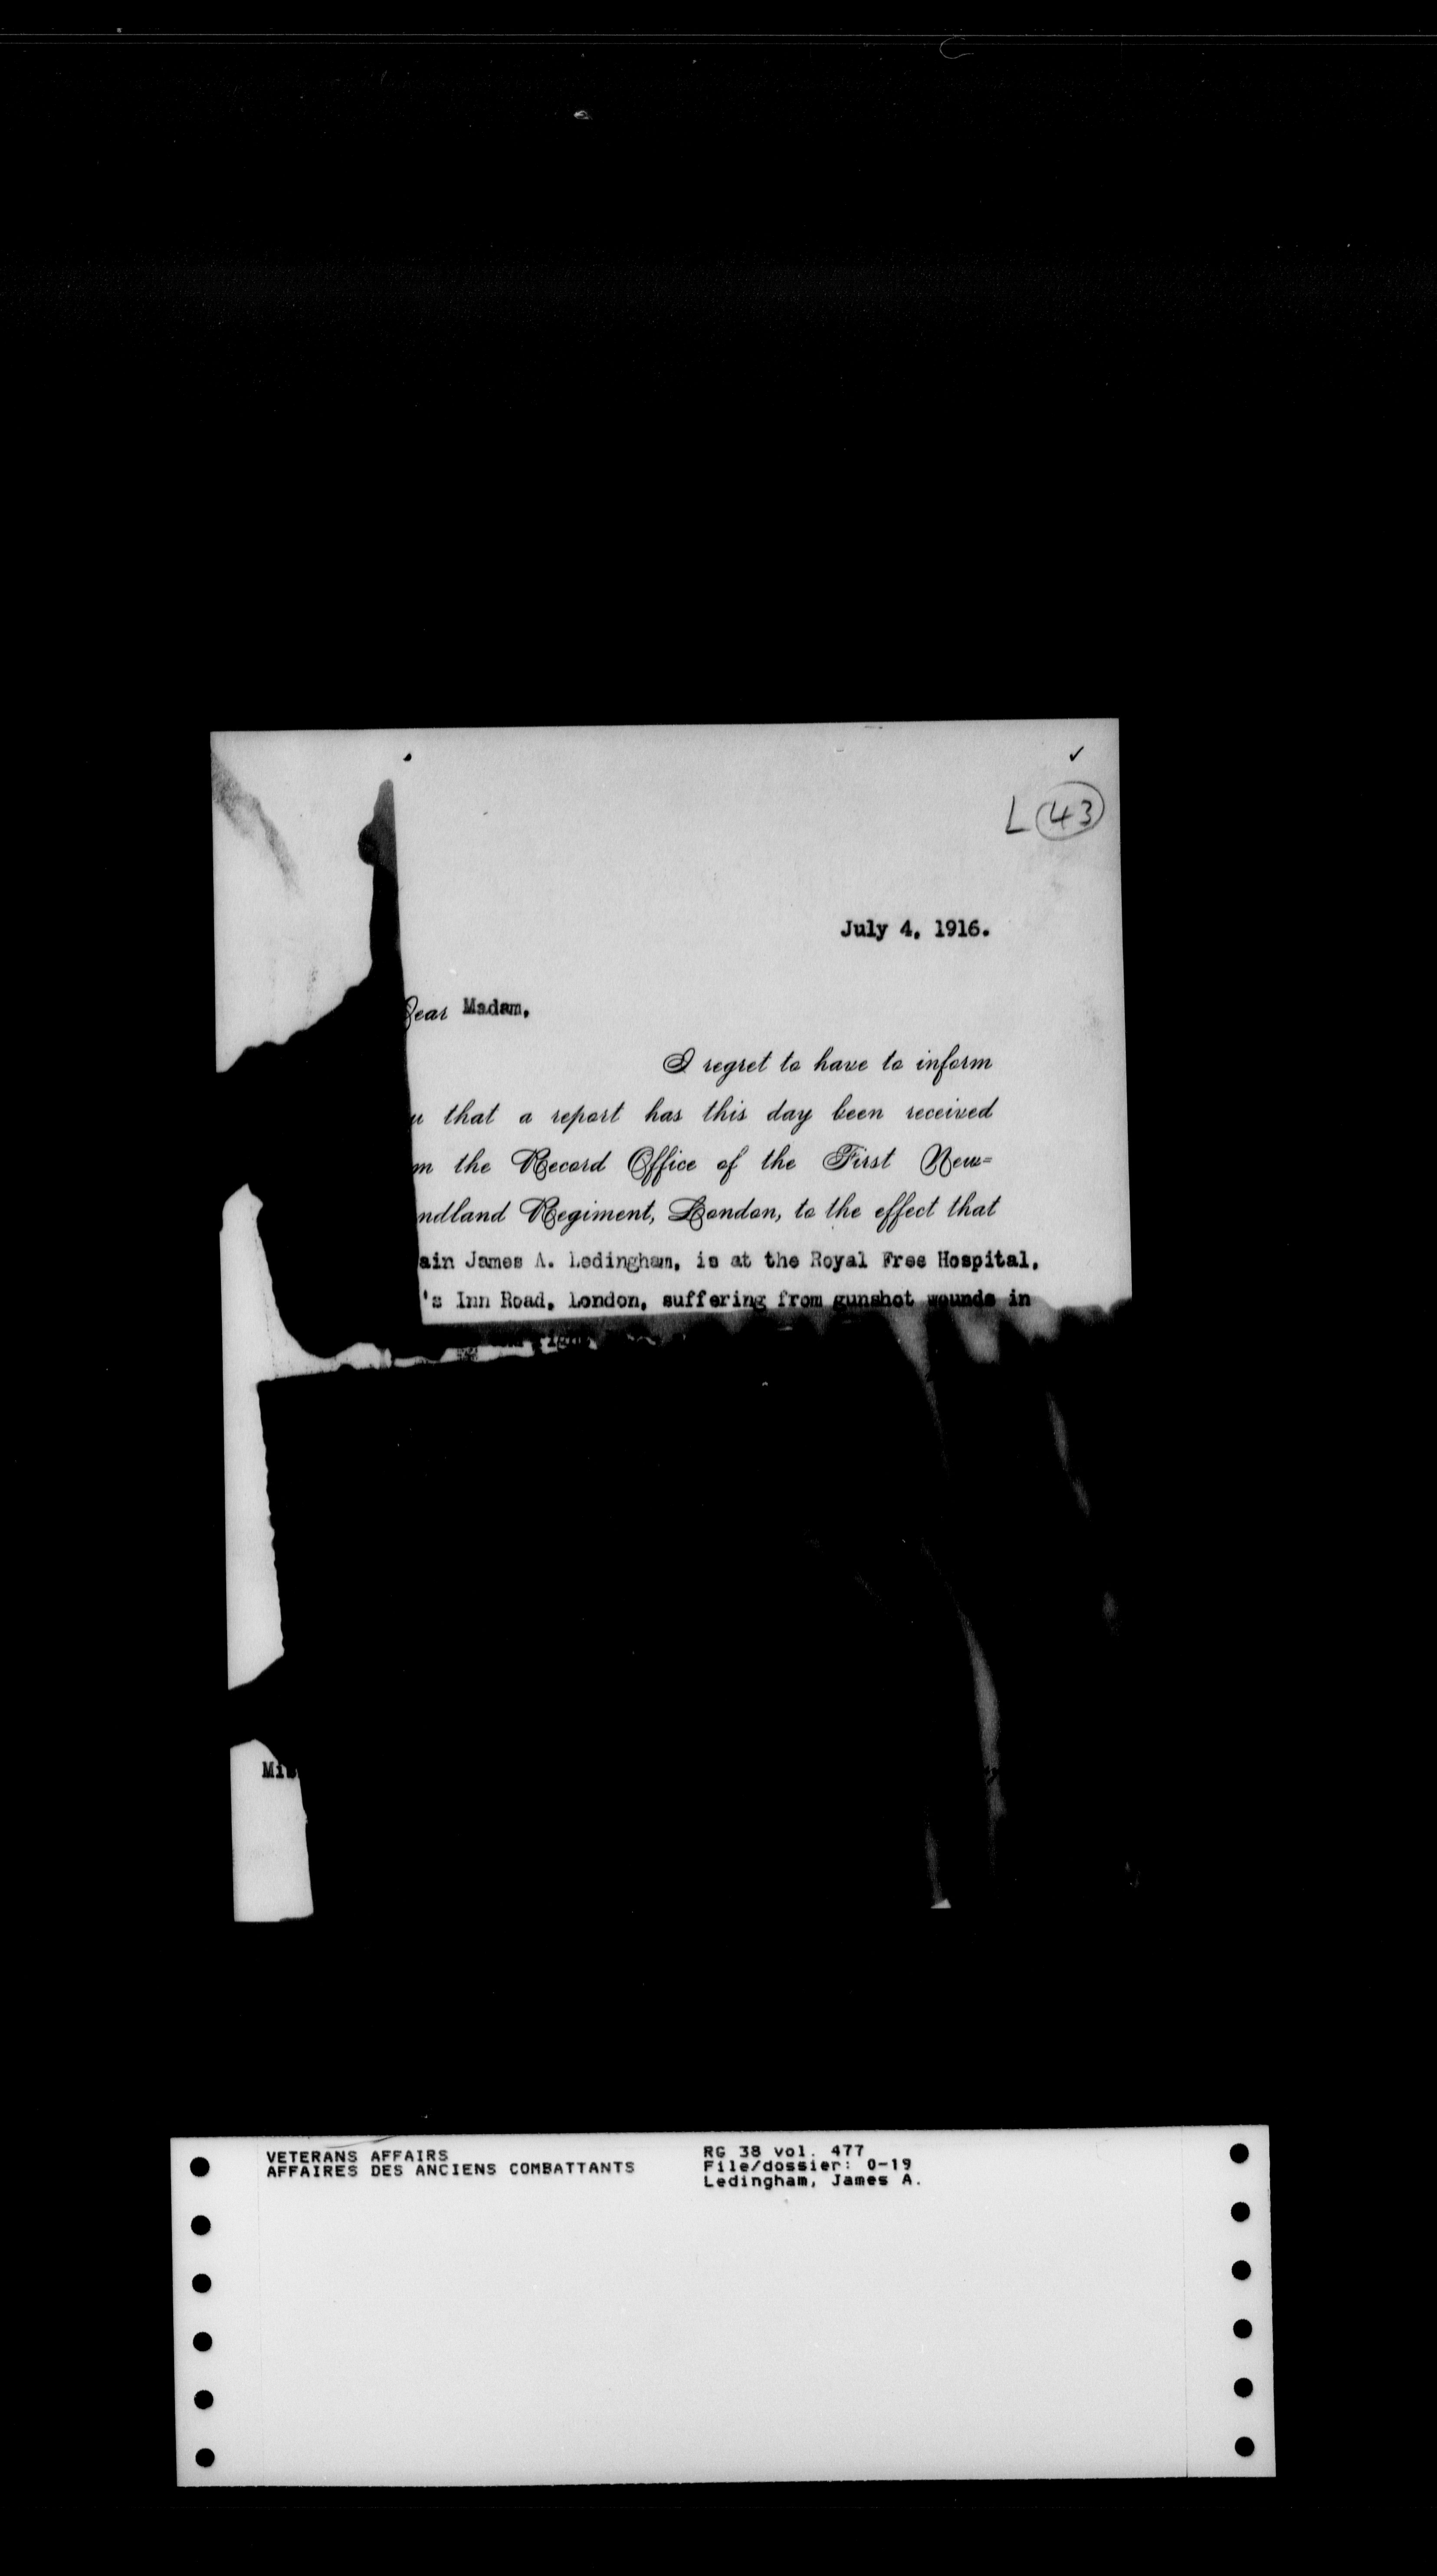 ✓
L 43
July 4, 1916.
Dear Madam,
I regret to have to inform
u that a report has this day been received
m the Record Office of the First New=
ndland Regiment, London, to the effect that
ain James A. Ledingham, is at the Royal Free Hospital,
's Inn Road, London, suffering from gunshot wounds in
Mis
VETERANS AFFAIRS
AFFAIRES DES ANCIENS COMBATTANTS
RG 38 vol. 477
File/dossier: 0-19
Ledingham, James A.